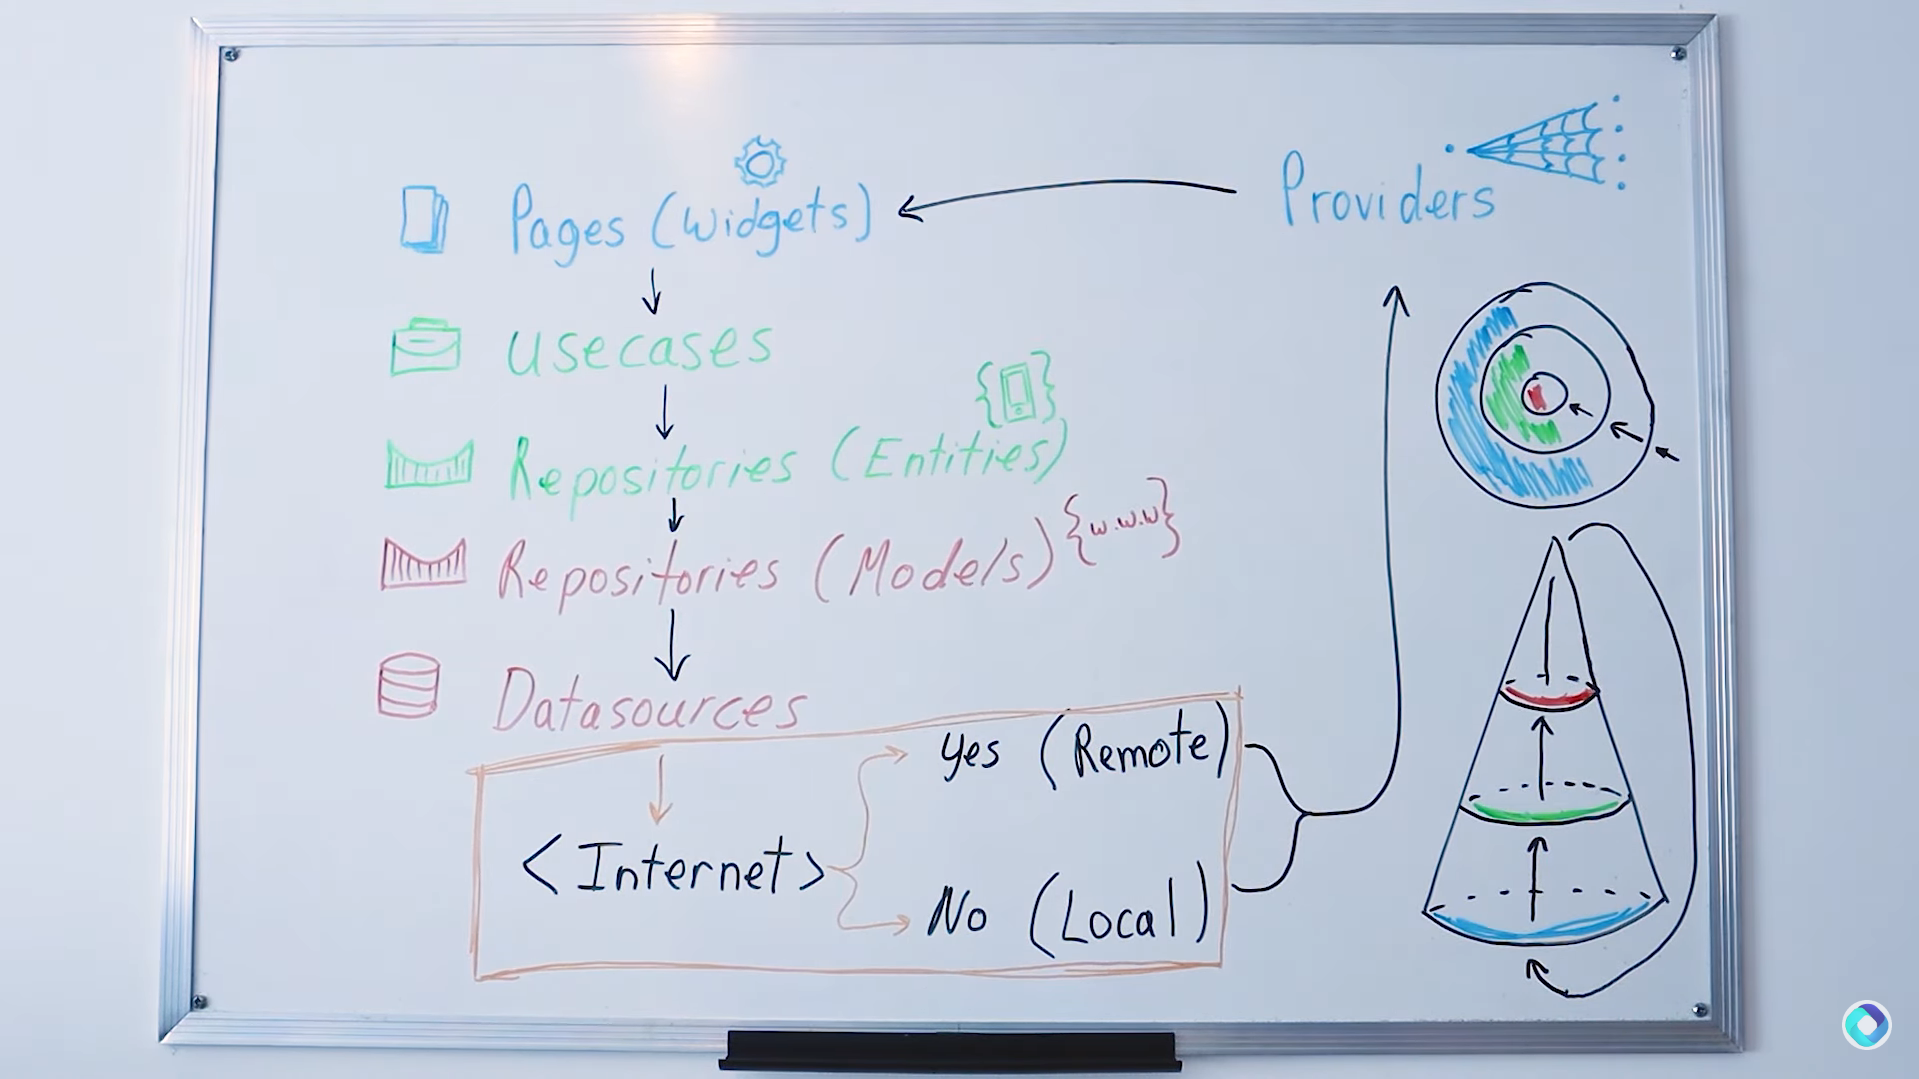 Pages (Widgets)
Providers
Usecases
Repositories (Entities)
Repositories (Models) {w.w.w}
Datasources
<Internet>
Yes (Remote)
No (Local)